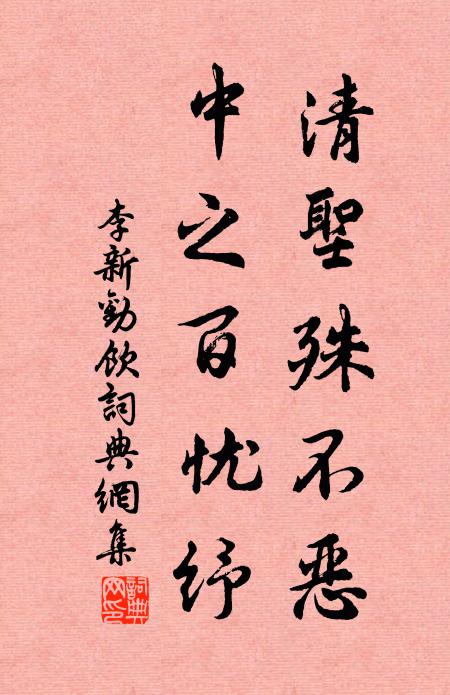 清聖殊不惡
中之百忧紓
李新勸飲詞典網集
詞典網印